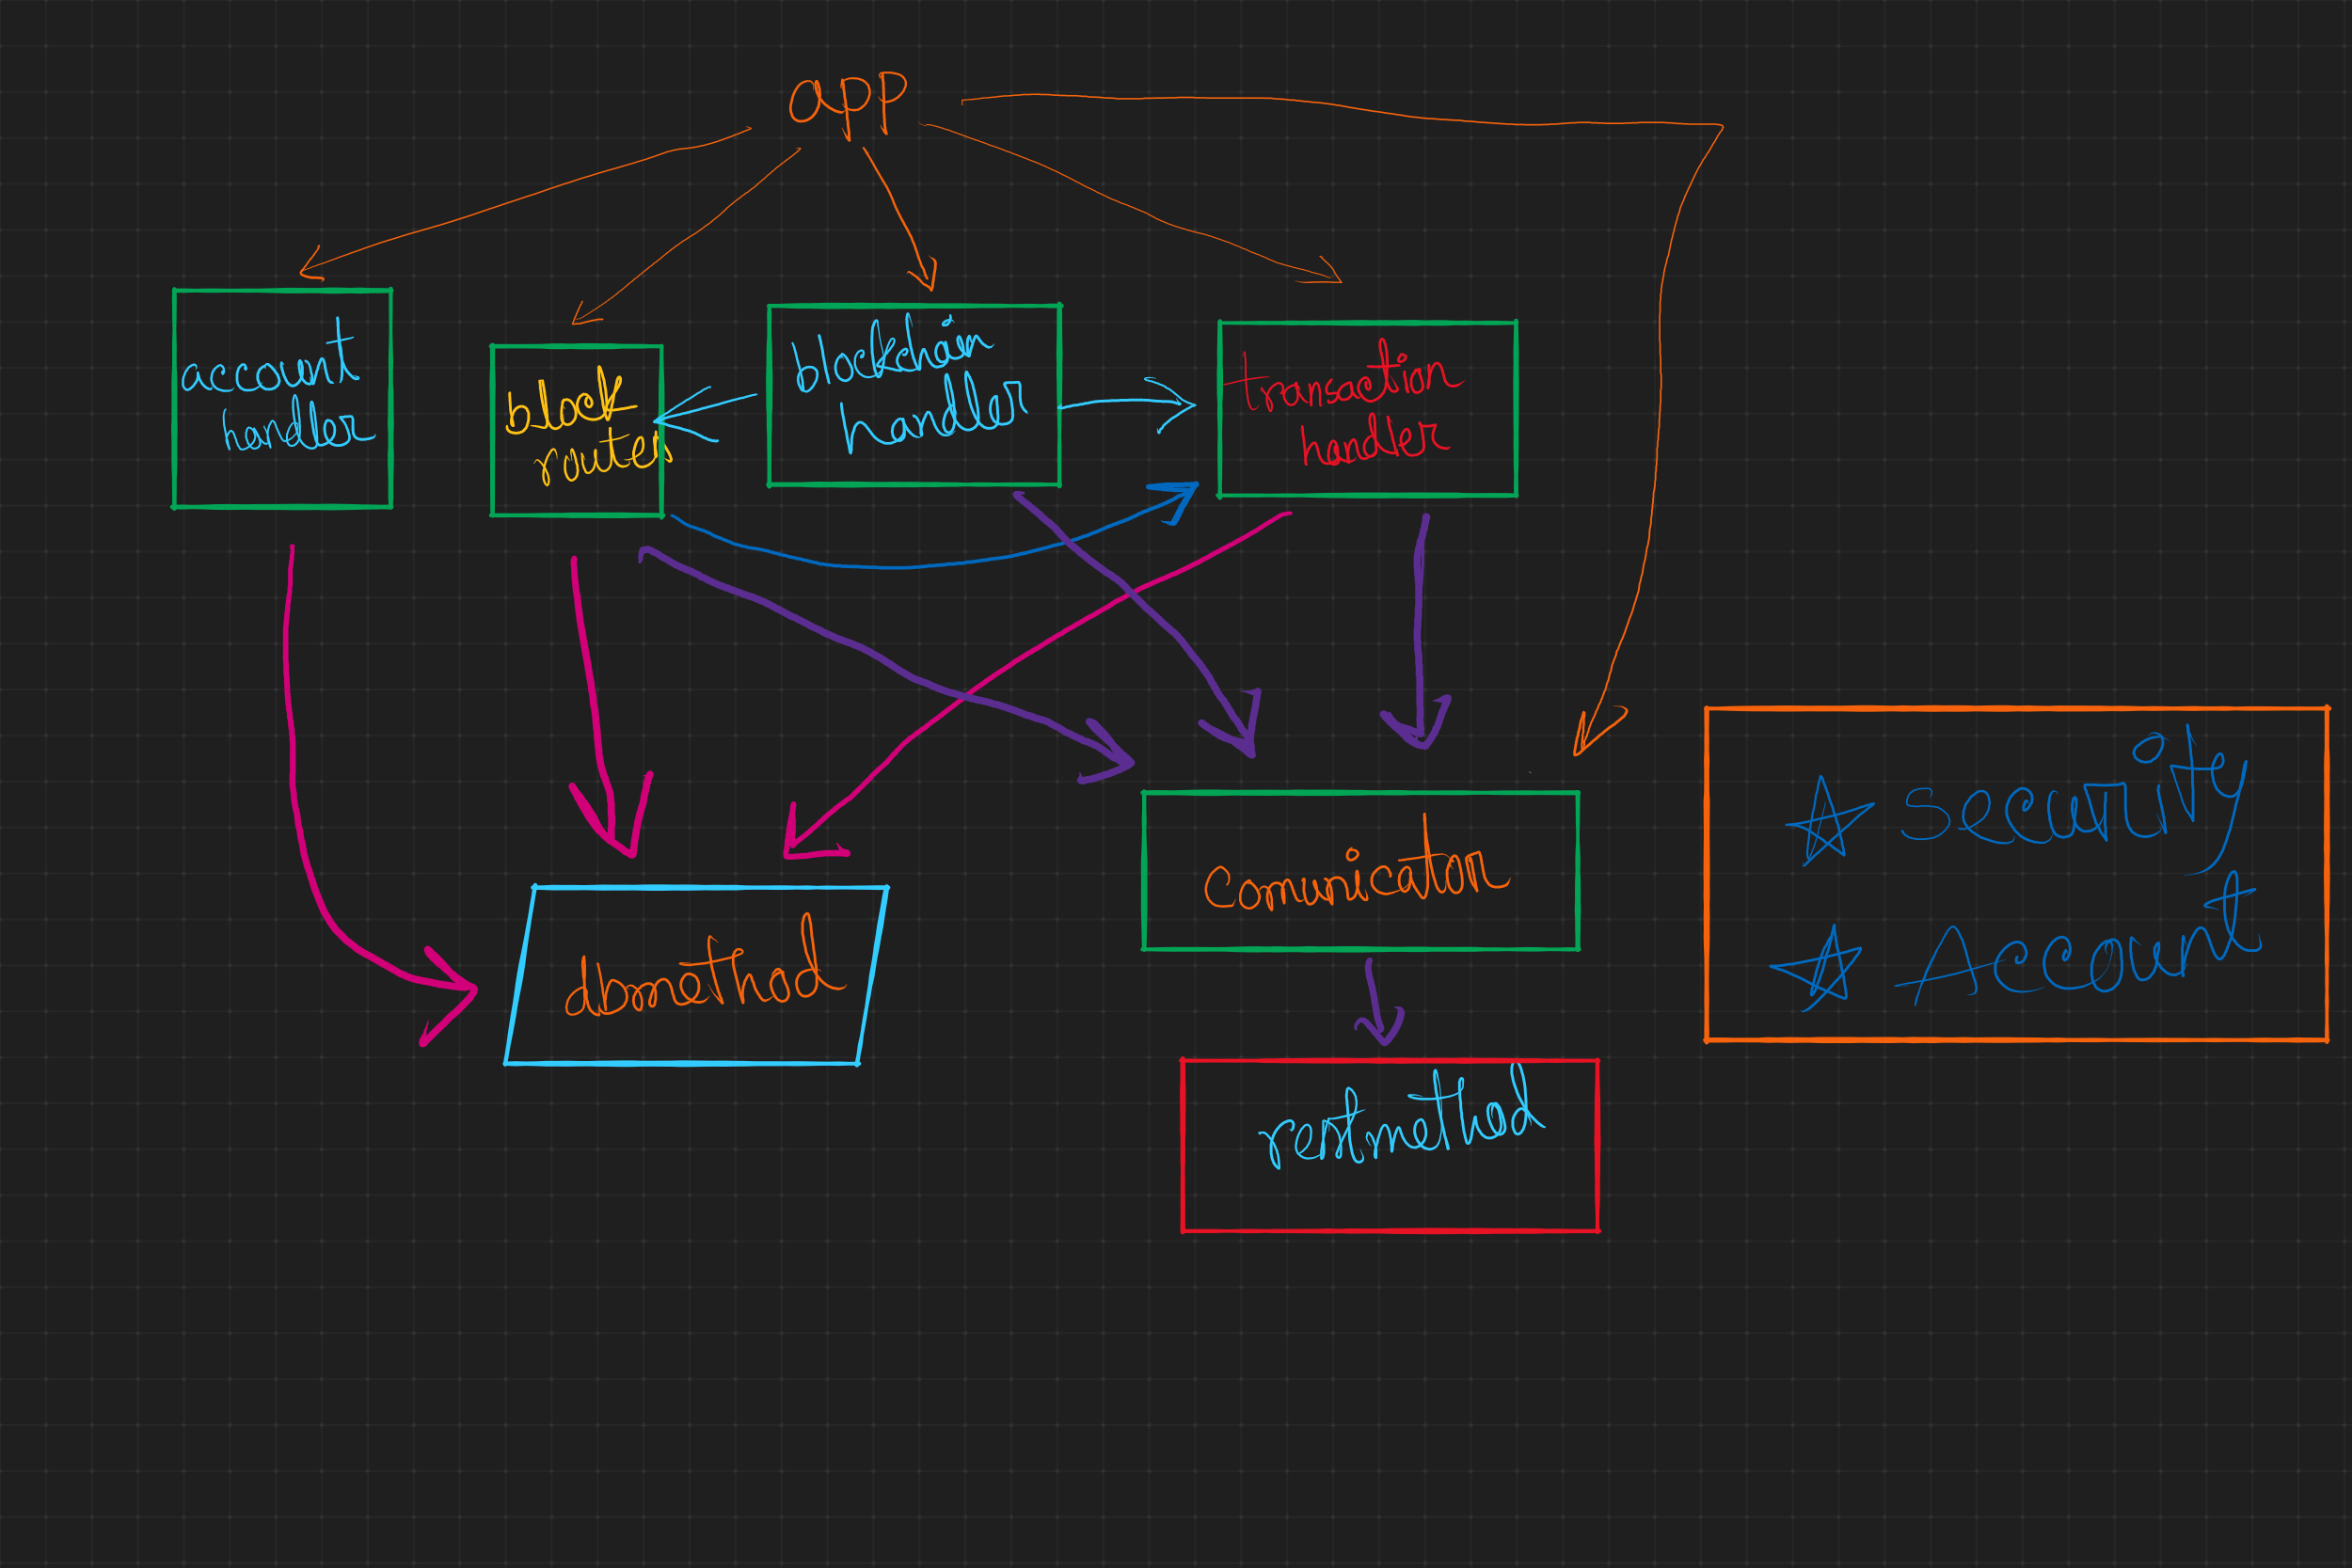 app
account
handler
block
router
blockchain
handler
transaction
handler
comunication
dbmethod
restmethod
security
Account